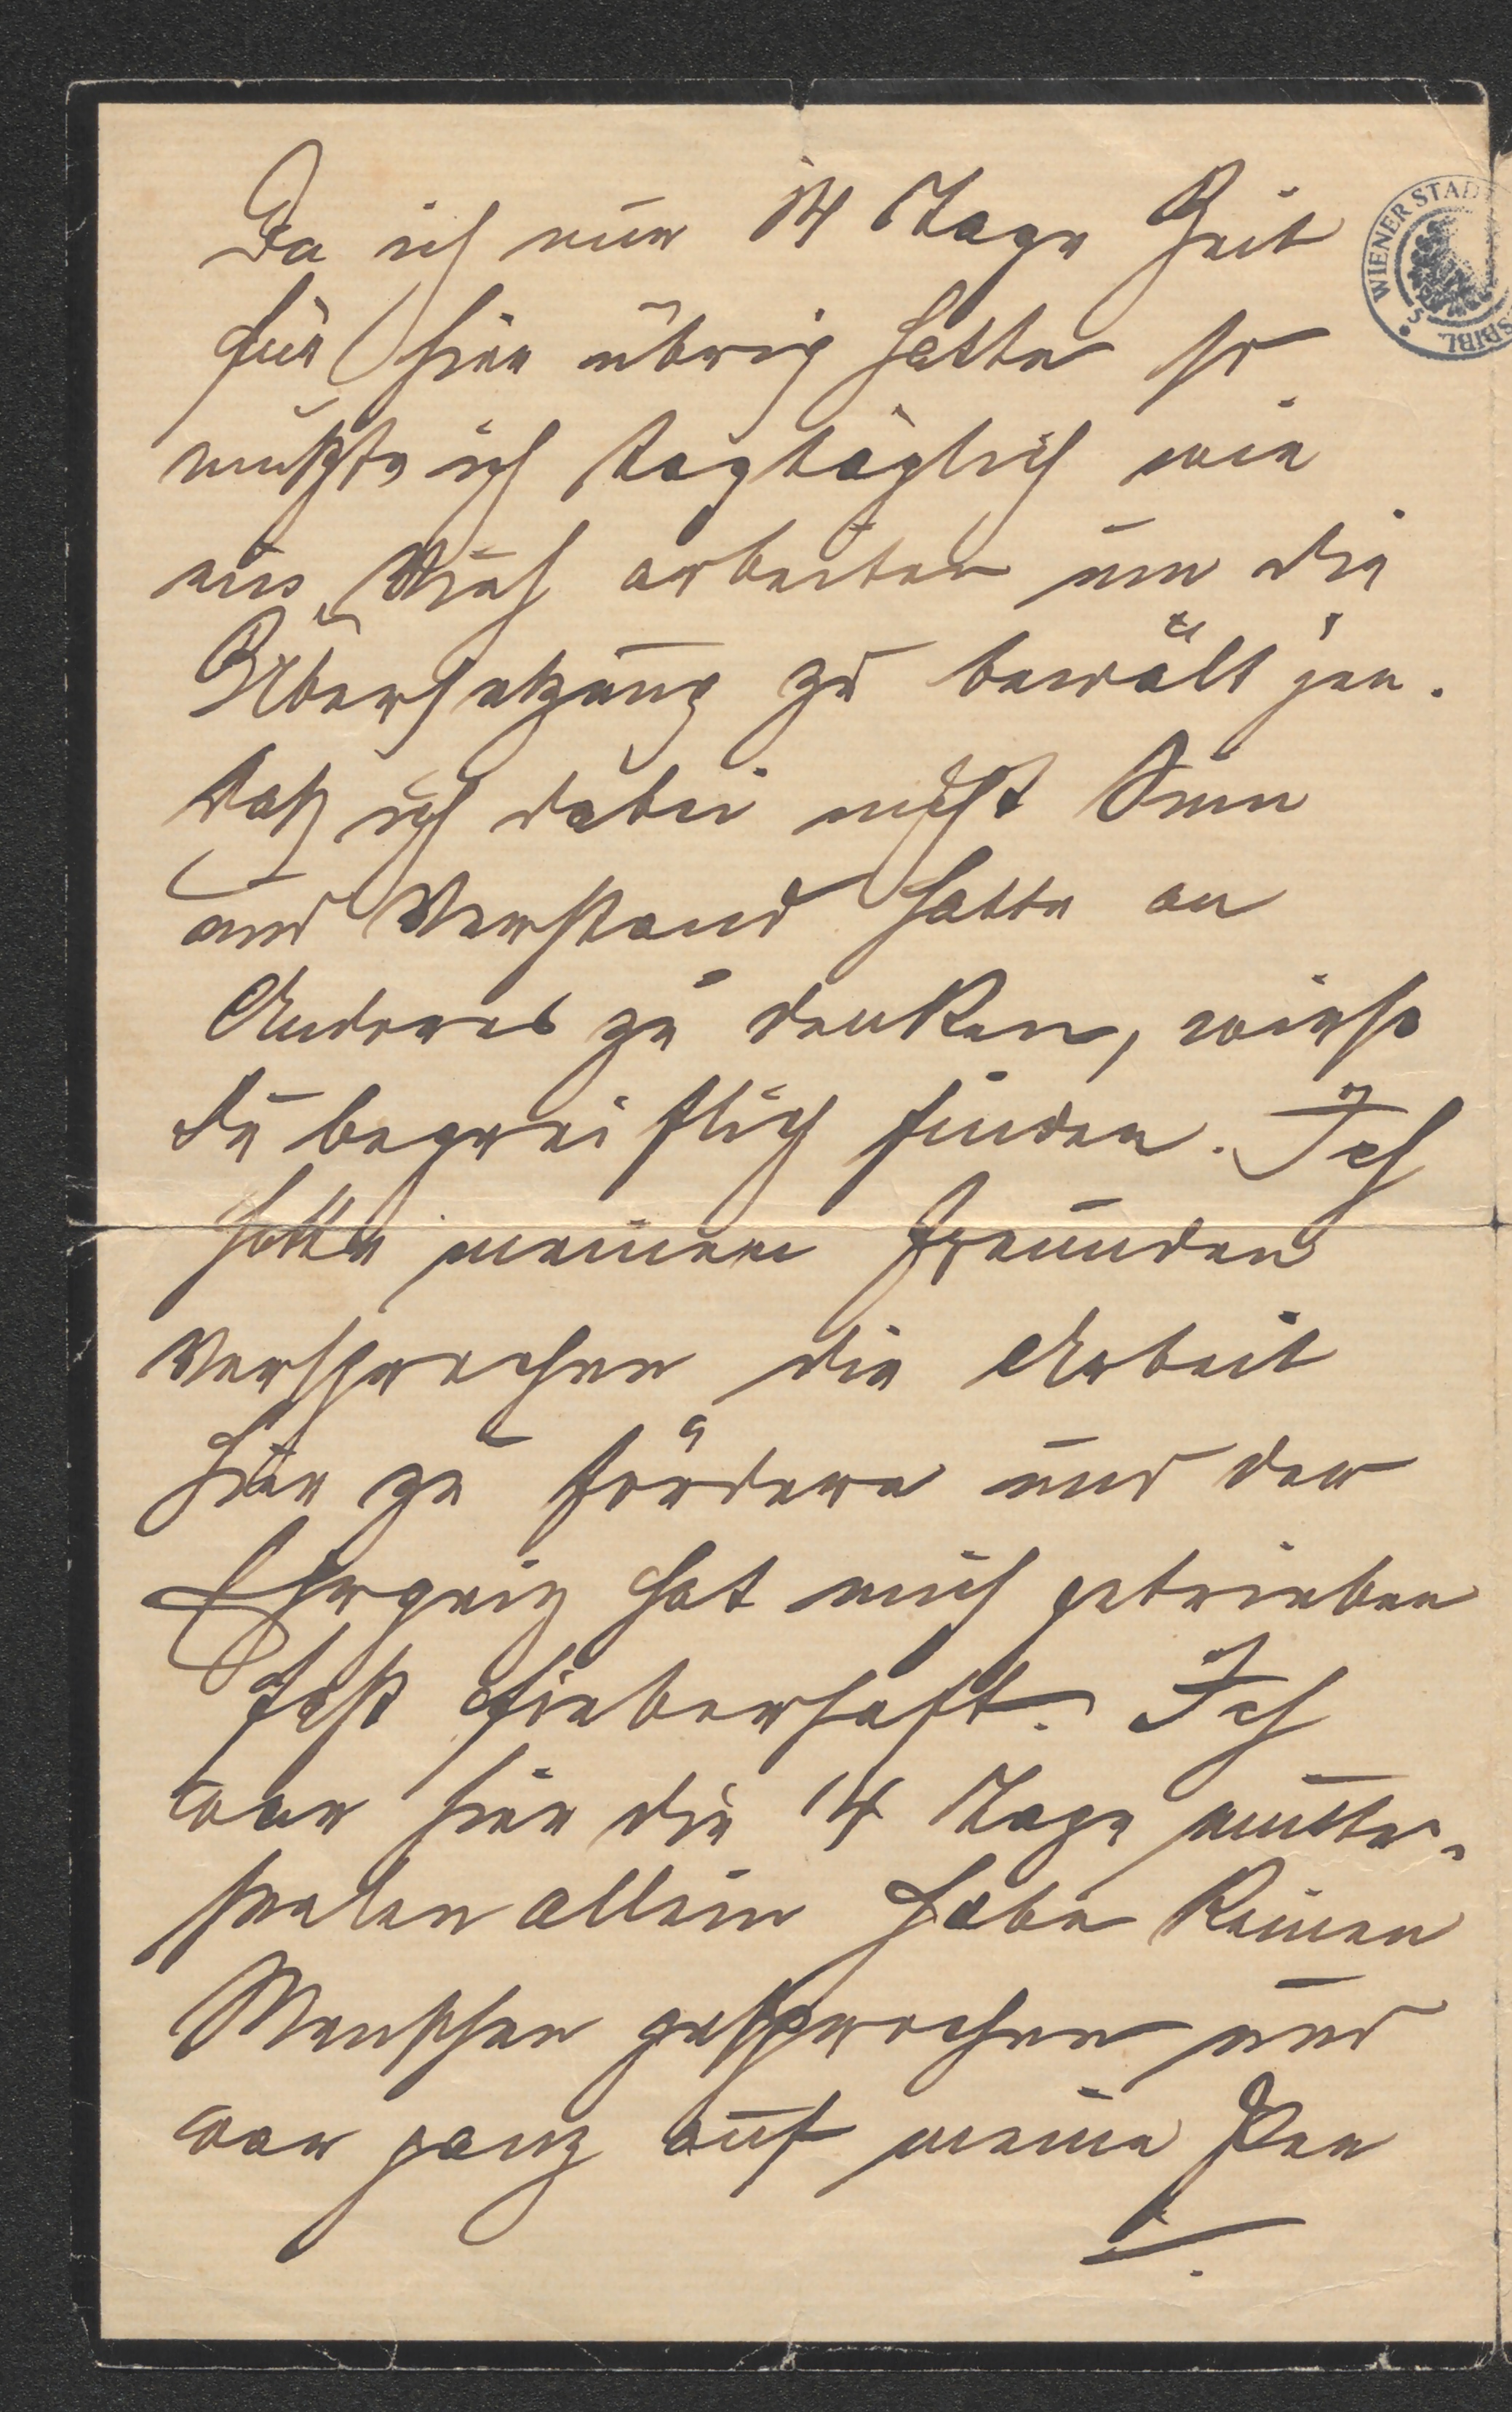 Da ich nur 14 Tage Zeit
für hier übrig hatte so
mußte ich tagtäglich wie
ein Vieh arbeiten um die
Übersetzung zu bewältigen.
Daß ich dabei nicht Sinn
und Verstand hatte an
Anderes zu denken, wirst
du begreiflich finden. Ich
hatte meinen Freunden
versprochen die Arbeit
hier zu fördern und der
Ehrgeiz hat mich getrieben
fast fieberhaft. Ich
war hier die 14 Tage mutter-
seelen allein habe keinen
Menschen gesprochen und
war ganz auf meine
WIENER STADT